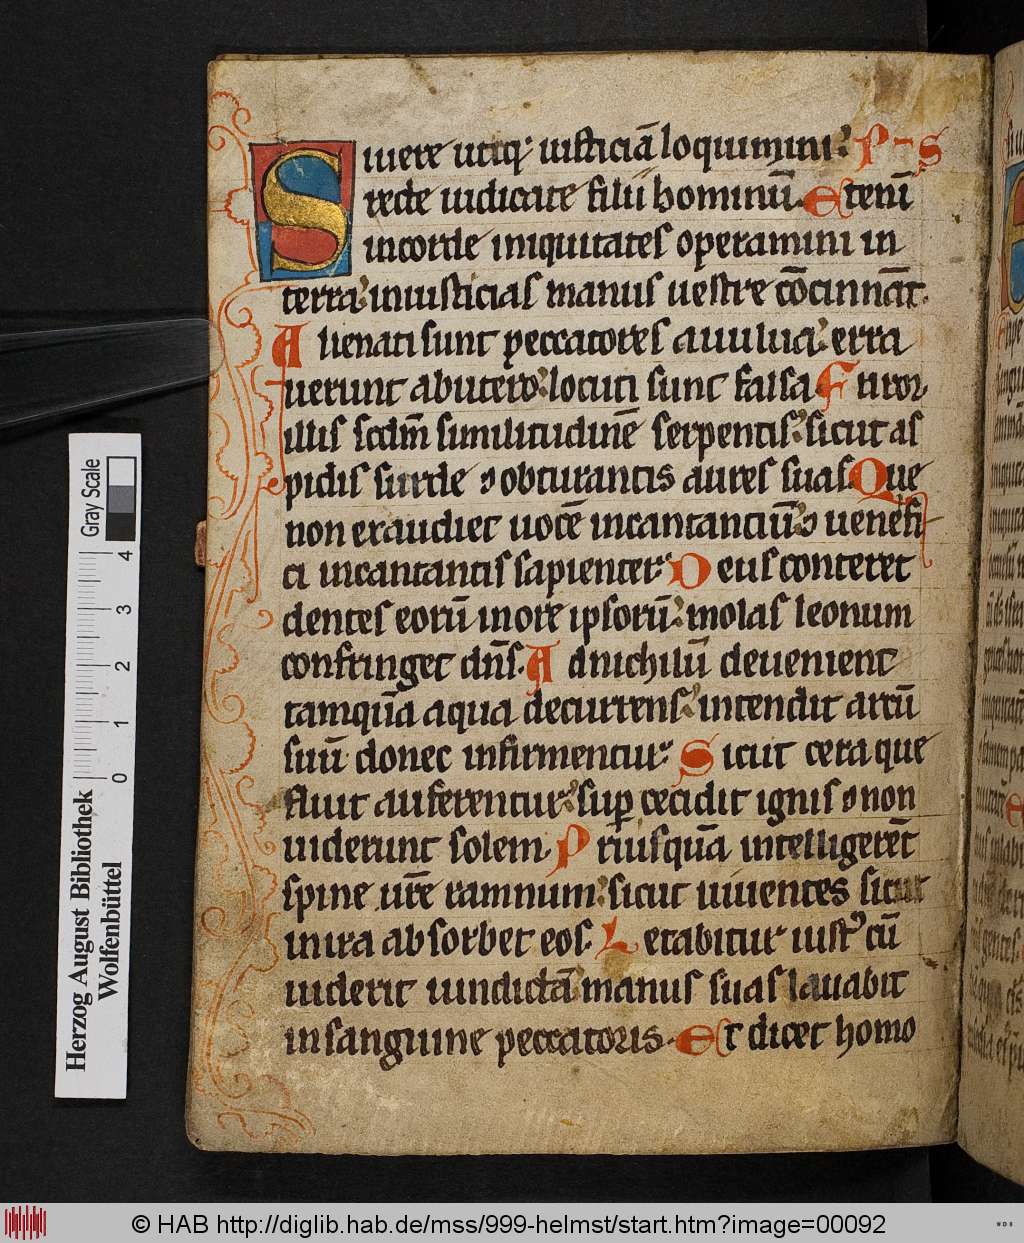 Si uere utiq; iusticiā loquimini: Ps
recte iudicate filii hominū. Etenī
in corde iniquitates operamini in
terra: iniusticias manus uestre cōcinnāt.
Alienati sunt peccatores a uulua: erra
uerunt ab utero: locuti sunt falsa Furor
illis scdm̄ similitudinē serpentis: sicut as
pidis surde & obturantis aures suas Que
non exaudiet uocē incantanciū: & uenefi
ci incantantis sapienter. Deus conteret
dentes eorū in ore ipsorū: molas leonum
confringet dn̄s. Ad nichilū deuenient
tamquā aqua decurrens: intendit arcū
suū donec infirmentur. Sicut cera que
fluit auferentur: sup cecidit ignis & non
uiderunt solem. Priusquā intelligerēt
spine ur̄e ramnum: sicut uiuentes sicut
in ira absorbet eos. Letabitur iust9 cū
uiderit uindictā: manus suas lauabit
in sanguine peccatoris. Et dicet homo
Gray Scale
4 3 2 1 0
Herzog August Bibliothek
Wolfenbüttel
© HAB http://diglib.hab.de/mss/999-helmst/start.htm?image=00092